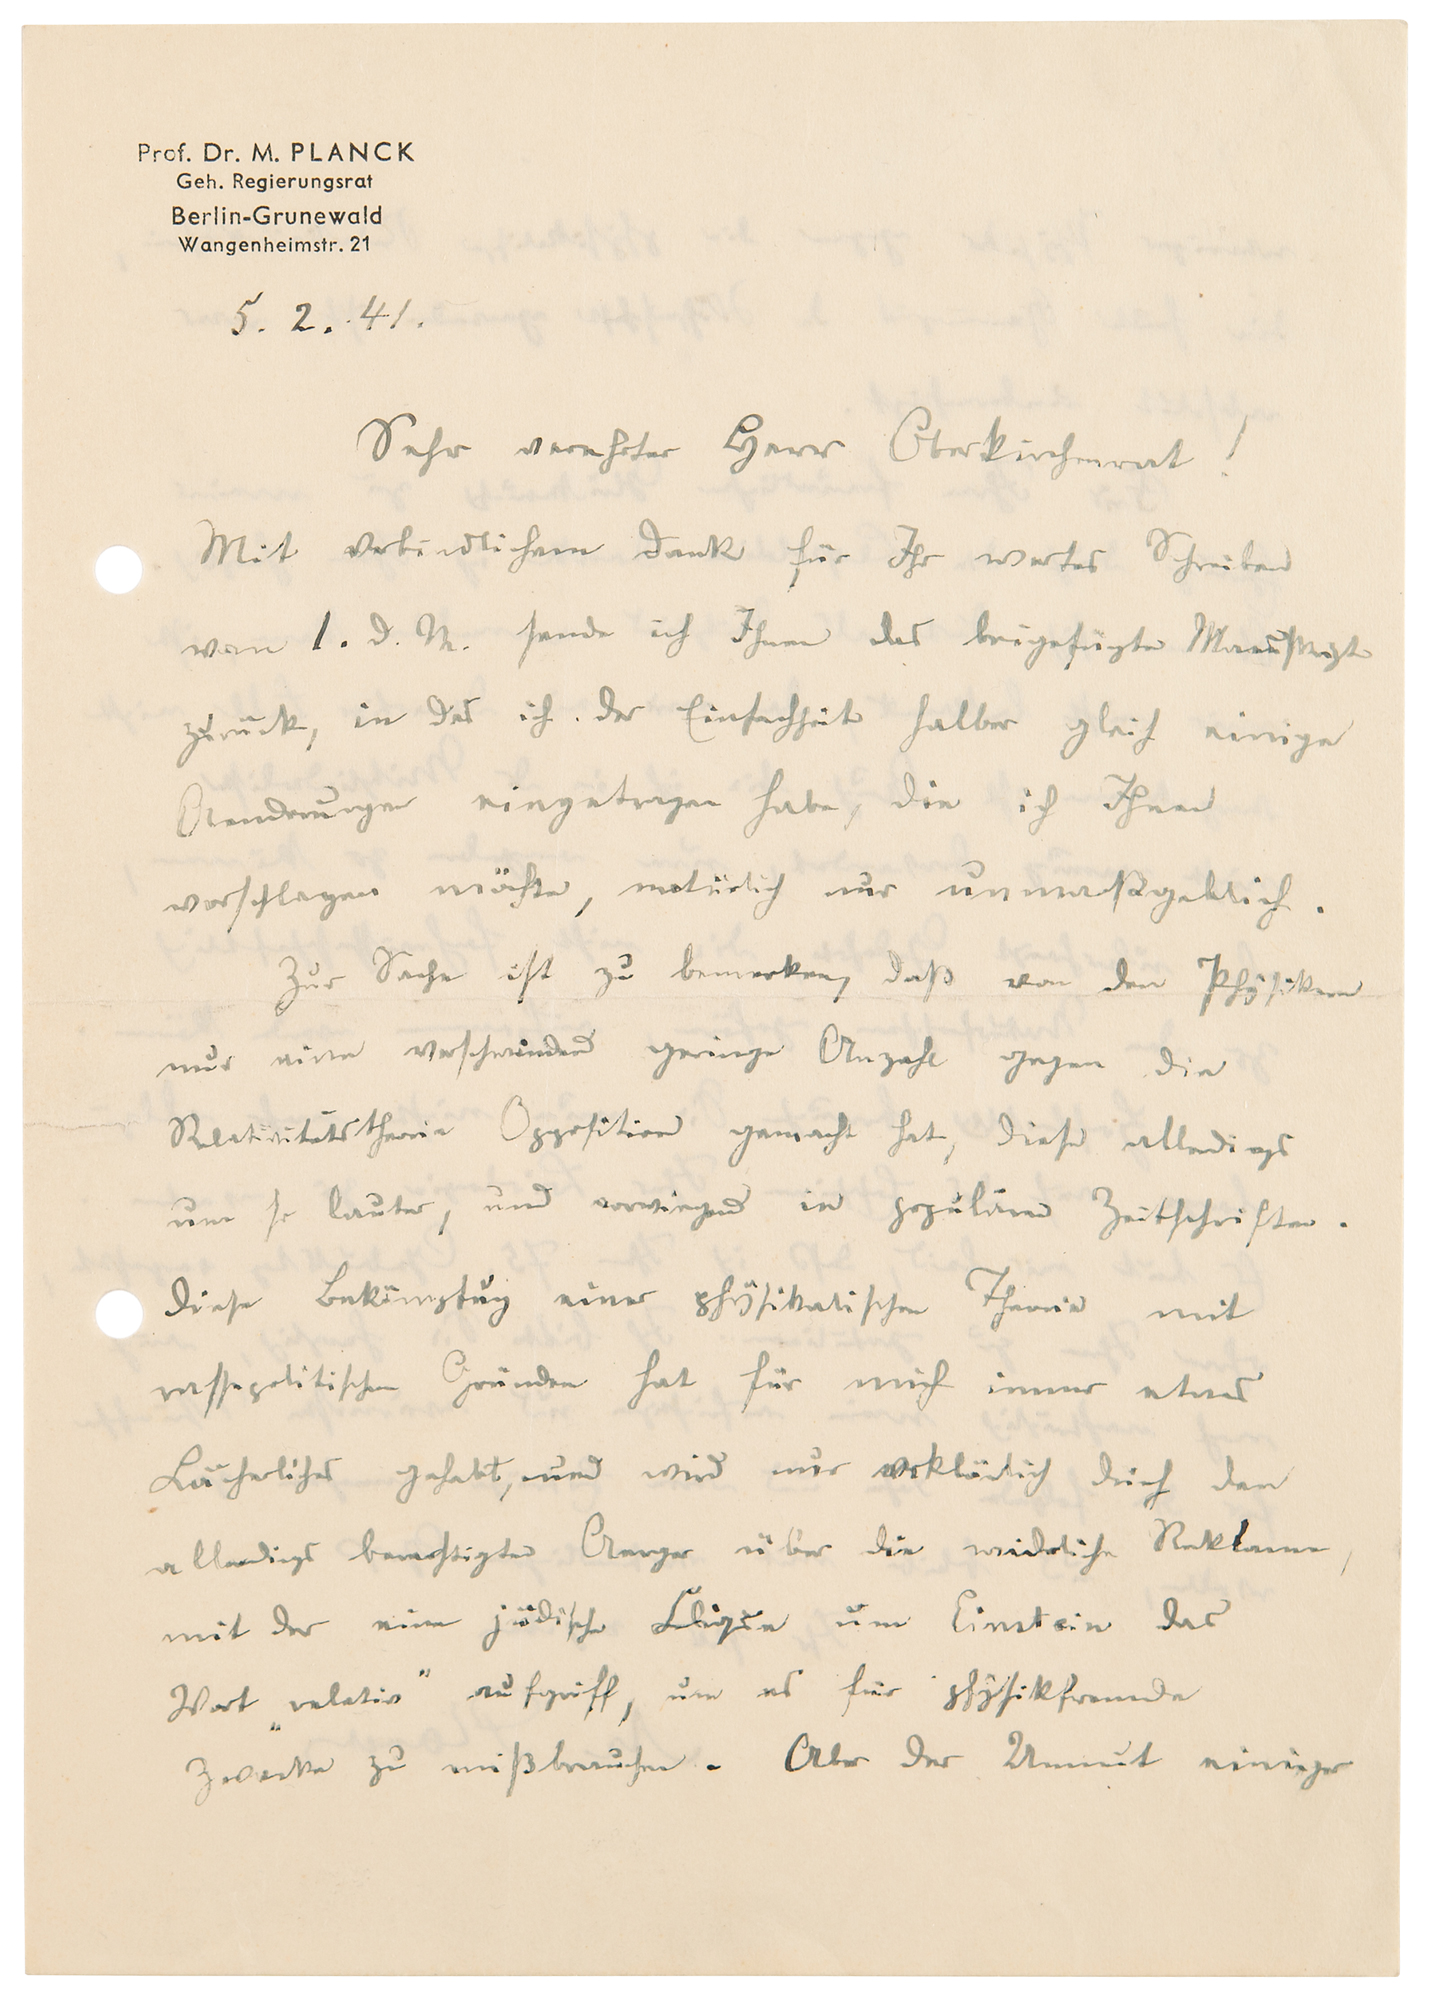 Prof. Dr. M. PLANCK
Geh. Regierungsrat
Berlin-Grunewald
Wangenheimstr. 21
5. 2. 41.
Sehr verehrter Herr Oberkirchenrat!
Mit verbindlichem Dank für Ihr wertes Schreiben
vom 1. d. M. sende ich Ihnen das beigefügte Manuskript
zurück, in das ich der Einfachheit halber gleich einige
Aenderungen eingetragen habe, die ich Ihnen
vorschlagen möchte, natürlich nur unmaßgeblich.
Zur Sache ist zu bemerken, daß von den Physikern
nur eine verschwindend geringe Anzahl gegen die
Relativitätstheorie Opposition gemacht hat, diese allerdings
um so lauter, und vorwiegend in populären Zeitschriften.
Diese Bekämpfung einer physikalischen Theorie mit
rassepolitischen Gründen hat für mich immer etwas
Lächerliches gehabt, und wird nur erklärlich durch den
allerdings berechtigten Aerger über die widerliche Reklame,
mit der eine jüdische Clique um Einstein das
Wort „relativ" aufgriff, um es für physikfremde
Zwecke zu mißbrauchen. Aber der Unmut einiger